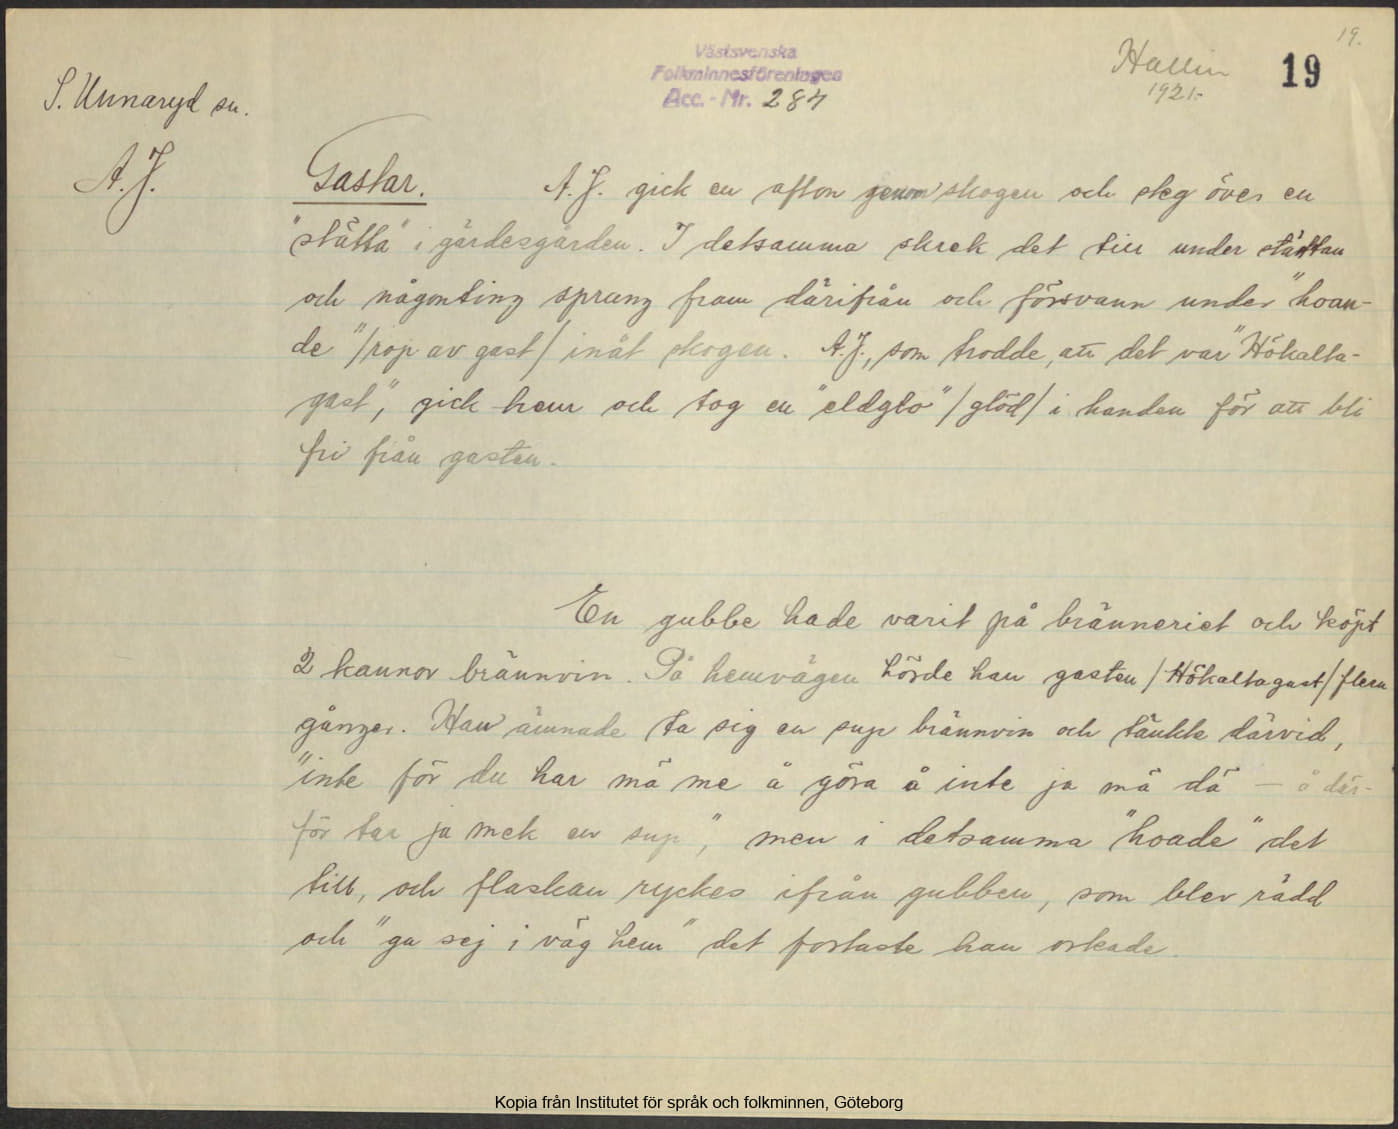 19.
Västsvenska
Folkminnesföreningen
Acc.-Nr. 284
Hallin
1921.
19
S. Unnaryd sn.
A. J.
Gastar. A. J. gick en afton genom skogen och steg över en
"stätta" i gärdesgården. I detsamma skrek det till under stättan
och någonting sprang fram därifrån och försvann under "hoan-
de" /rop av gast/ inåt skogen. A. J., som trodde, att det var "Hökalta-
gast", gick hem och tog en "eldglo" /glöd/ i handen för att bli
fri från gasten.
En gubbe hade varit på bränneriet och köpt
2 kannor brännvin. På hemvägen hörde han gasten /Hökaltagast/ flera
gånger. Han ämnade ta sig en sup brännvin och tänkte därvid,
"inte för du har mä me å göra å inte ja mä dä — å där-
för tar ja mek en sup", men i detsamma "hoade" det
till, och flaskan ryckes ifrån gubben, som blev rädd
och "ga sej i väg hem" det fortaste han orkade.
Kopia från Institutet för språk och folkminnen, Göteborg